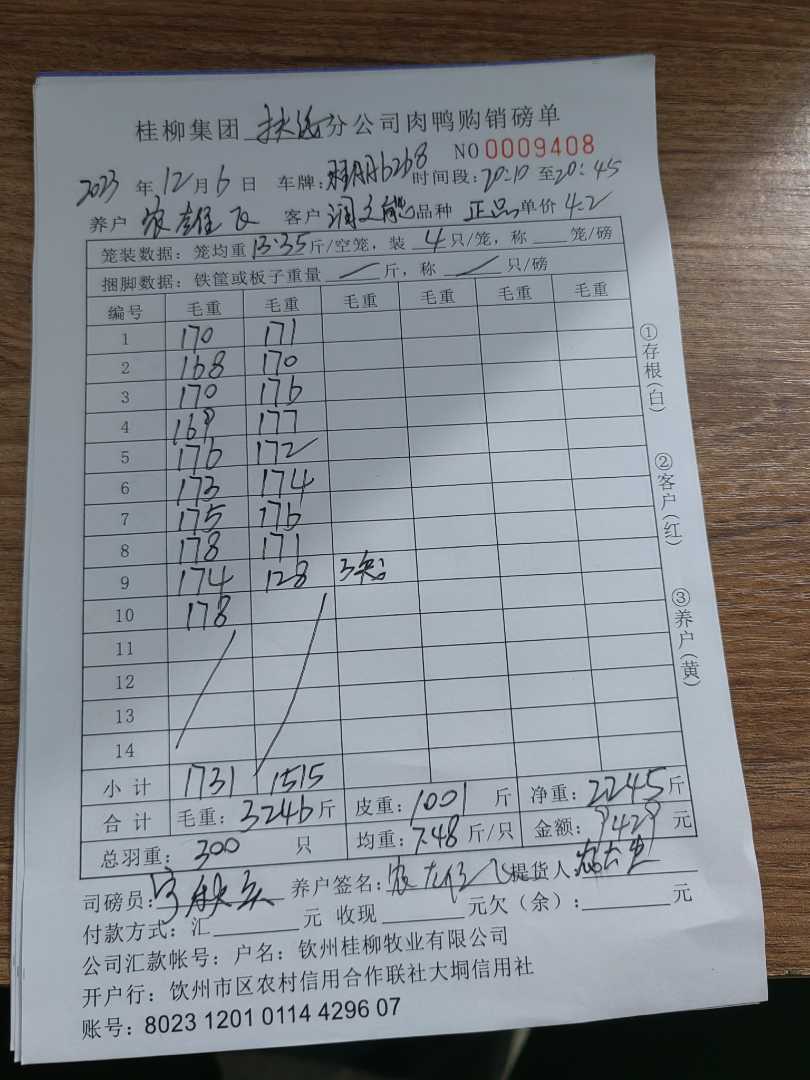 桂柳集团 扶绥 分公司肉鸭购销磅单
NO 0009408
2023 年 12 月 6 日 车牌: 6268 时间段: 20:10 至 20:45
养户 农 飞 客户 文能 品种 正品 单价 4.2
笼装数据: 笼均重 13.35 斤/空笼, 装 4 只/笼, 称 笼/磅
捆脚数据: 铁筐或板子重量 / 斤, 称 / 只/磅
编号 毛重 毛重 毛重 毛重 毛重 毛重
1 170 171
2 168 170
3 170 176
4 169 177
5 176 172
6 173 174
7 175 176
8 178 171
9 174 128 3只
10 178
11
12
13
14
小计 1731 1515
合计 毛重: 3246 斤 皮重: 1001 斤 净重: 2245 斤
总羽重: 300 只 均重: 7.48 斤/只 金额: 9429 元
司磅员: 养户签名: 农 飞 提货人:
付款方式: 汇 元 收现 元欠(余): 元
公司汇款帐号: 户名: 钦州桂柳牧业有限公司
开户行: 钦州市区农村信用合作联社大垌信用社
账号: 8023 1201 0114 4296 07
①存根(白)
②客户(红)
③养户(黄)